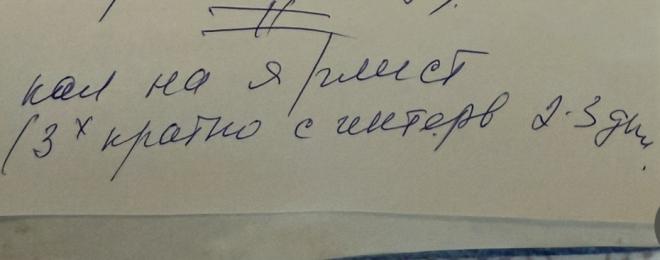 кал на я/глист
(3х кратно с интерв 2-3 дн.